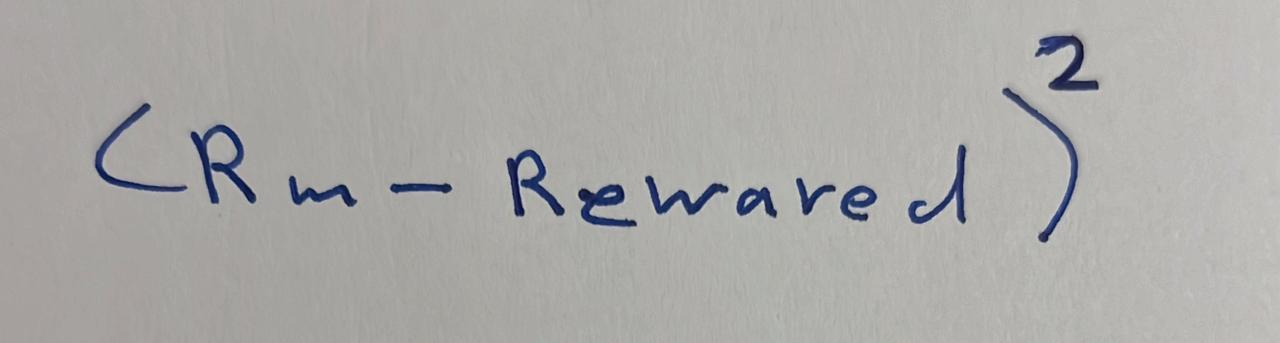 (Rm - Rewared)²